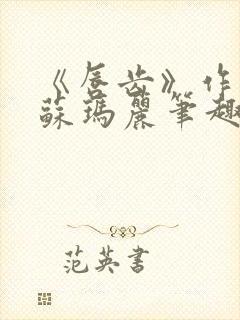 《唇齿》作
蘇瑪麗筆趣
范英書